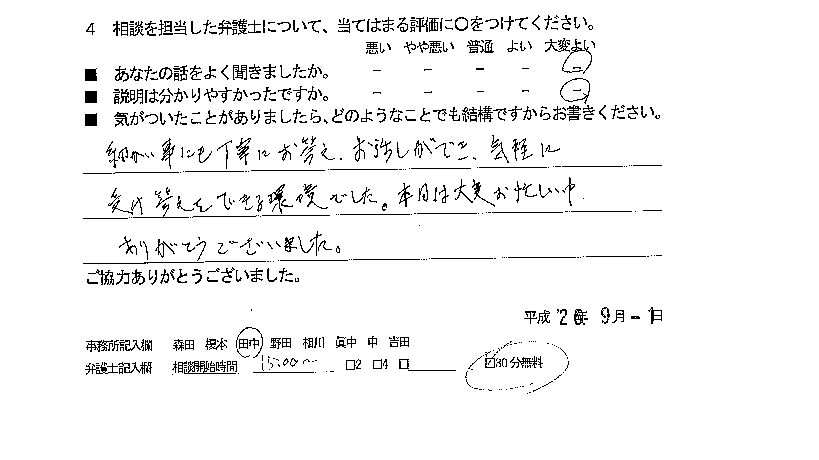 4 相談を担当した弁護士について、当てはまる評価に〇をつけてください。
悪い やや悪い 普通 よい 大変よい
■ あなたの話をよく聞きましたか。 － － － － －
■ 説明は分かりやすかったですか。 － － － － －
■ 気がついたことがありましたら、どのようなことでも結構ですからお書きください。
細かい事にも丁寧にお答え、お話しができ、気軽に
受け答えをできる環境でした。本日は大変お忙しい中
ありがとうございました。
ご協力ありがとうございました。
平成 26年 9月 -1日
事務所記入欄 森田 榎本 田中 野田 相川 眞中 中 吉田
弁護士記入欄 相談開始時間 15:00~ □2 □4 □ ☑30分無料